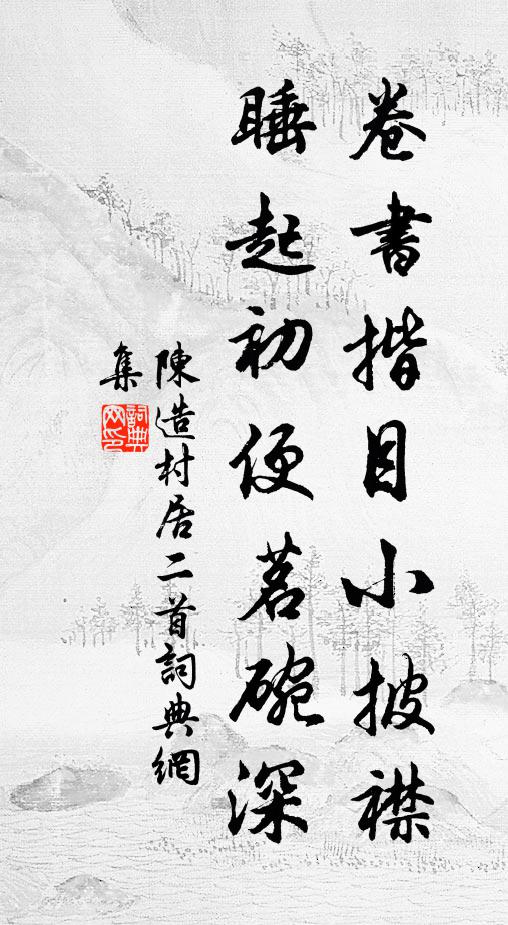 卷書揩目小披襟
睡起初便茗碗深
陳造村居二首詞典網
集
詞典
网印